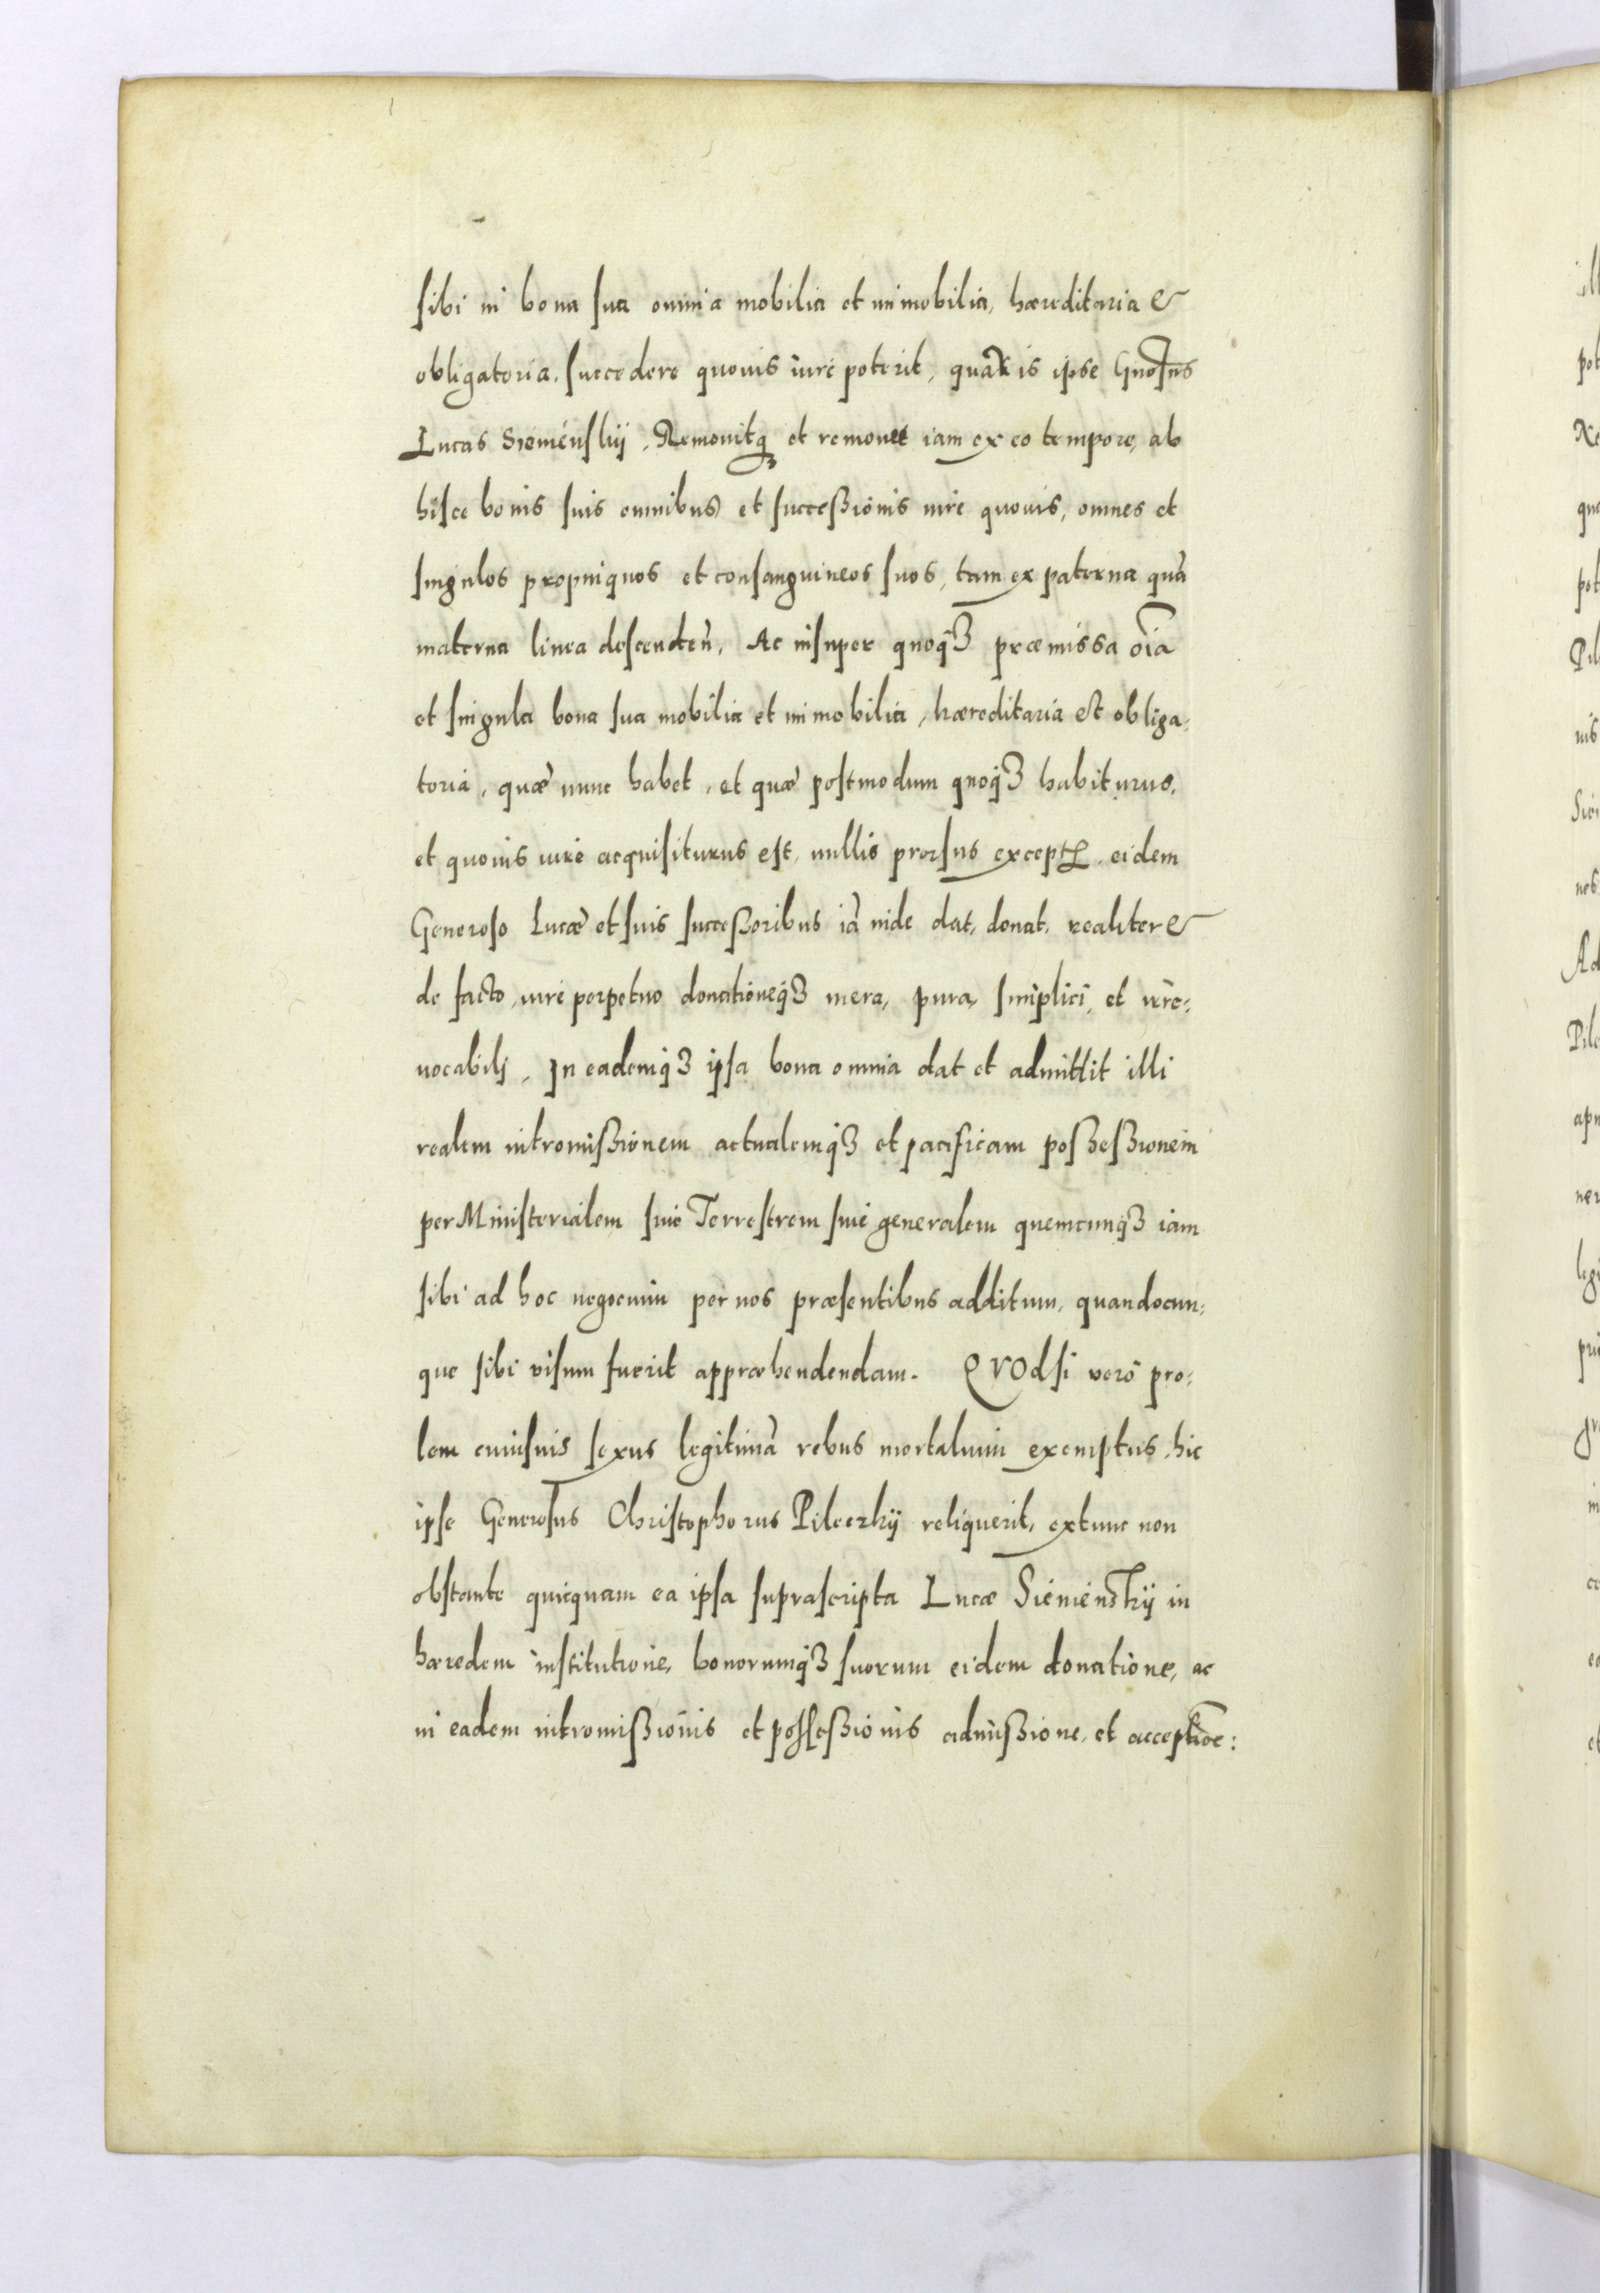 sibi in bona sua omnia mobilia et immobilia, hæreditaria &
obligatoria, succedere quouis iure poterit, quàm is ipse Gnosus
Lucas Siemienskÿ, Remouitq3 et remouet iam ex eo tempore, ab
hisce bonis suis omnibus et successionis iure quouis, omnes et
singulos propinquos et consanguineos suos, tam ex paterna quã
materna linea descendeñ, Ac insuper quoq3 præmissa oĩa
et singula bona sua mobilia et immobilia, hæreditaria et obliga,
toria, quæ nunc habet, et quæ postmodum quoq3 habiturus,
et quouis iure acquisiturus est, nullis prorsus except., eidem
Generoso Lucæ et suis successoribus iã inde dat, donat, realiter &
de facto, iure perpetuo donationeq3 mera, pura, simplici, et irre,
uocabili, In eademq3 ipsa bona omnia dat et admittit illi
realem intromissionem actualemq3 et pacificam possessionem
per Ministerialem siue Terrestrem siue generalem quemcunq3 iam
sibi ad hoc negocium per nos præsentibus additum, quandocun,
que sibi visum fuerit appræhendendam. QVOdsi verò pro,
lem cuiusuis sexus legitimã rebus mortalium exemptus, hic
ipse Generosus Christophorus Pileczkÿ reliquerit, extunc non
obstante quicquam ea ipsa suprascripta Lucæ Siemienskÿ in
hæredem institutione, bonorumq3 suorum eidem donatione, ac
in eadem intromissionis et possessionis admissione, et acceptioẽ: